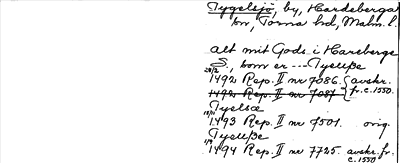 Tygelsjö, by, Hardeberga
sn, Torna hd, Malm. l.
alt mit Gods i Hareberge
S., som er --- Tyelsße
28/2
1492 Rep. II nr 7086. avskr.
1492 Rep. II nr 7087 fr. c. 1550.
Tyelsæ
1493 Rep. II nr 7501. orig.
Tyelsße
1494 Rep. II nr 7725. avskr. fr.
c. 1550